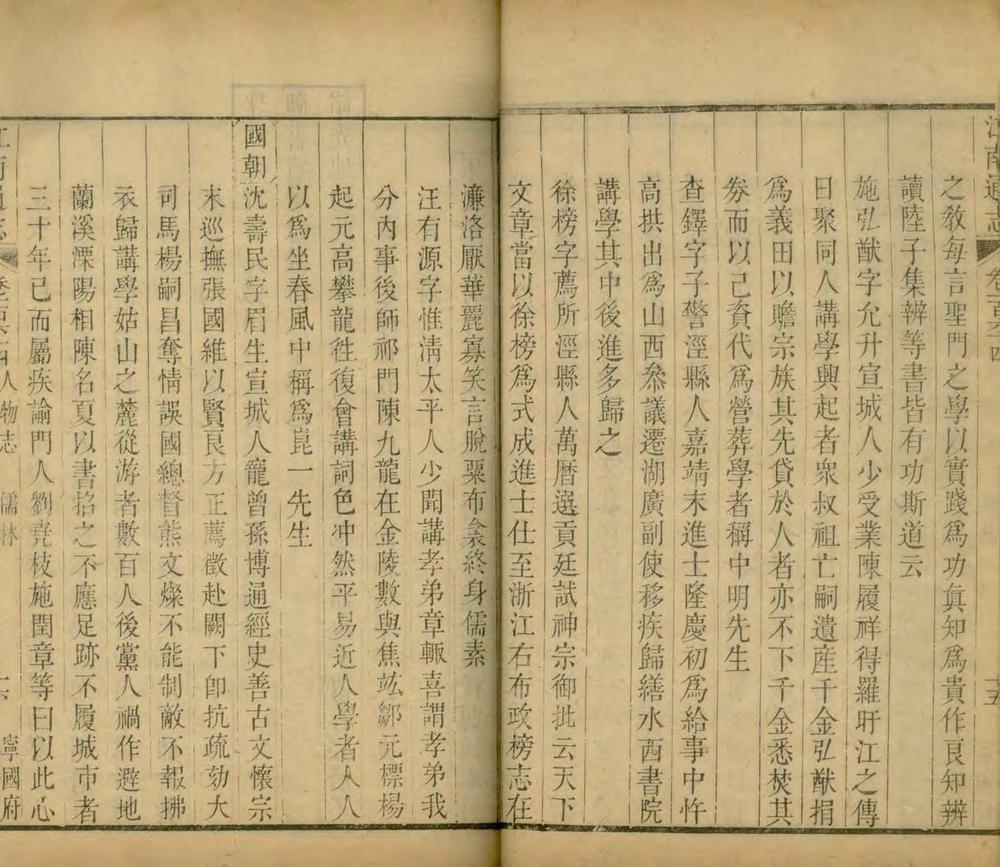 之教每言聖門之學以實踐爲功真知爲貴作良知辨
讀陸子集辨等書皆有功斯道云
施弘猷字允升宣城人少受業陳履祥得羅旴江之傳
日聚同人講學興起者衆叔祖亡嗣遺産千金弘猷捐
爲義田以贍宗族其先貸於人者亦不下千金悉焚其
券而以己貲代爲營葬學者稱中明先生
查鐸字子警涇縣人嘉靖末進士隆慶初爲給事中忤
高拱出爲山西叅議遷湖廣副使移疾歸繕水西書院
講學其中後進多歸之
徐榜字薦所涇縣人萬曆選貢廷試神宗御批云天下
文章當以徐榜爲式成進士仕至浙江右布政榜志在
濂洛厭華麗寡笑言脫粟布衾終身儒素
汪有源字惟清太平人少聞講孝弟章輒喜謂孝弟我
分內事後師祁門陳九龍在金陵數與焦竑鄒元標楊
起元高攀龍徃復會講詞色冲然平易近人學者人人
以爲坐春風中稱爲崑一先生
國朝沈壽民字眉生宣城人寵曾孫博通經史善古文懷宗
末巡撫張國維以賢良方正薦徵赴闕下卽抗疏劾大
司馬楊嗣昌奪情誤國總督熊文燦不能制敵不報拂
衣歸講學姑山之麓從游者數百人後黨人禍作避地
蘭溪溧陽相陳名夏以書招之不應足跡不履城市者
三十年已而屬疾諭門人劉堯枝施閏章等曰以此心
江南通志 人物志 儒林 寧國府